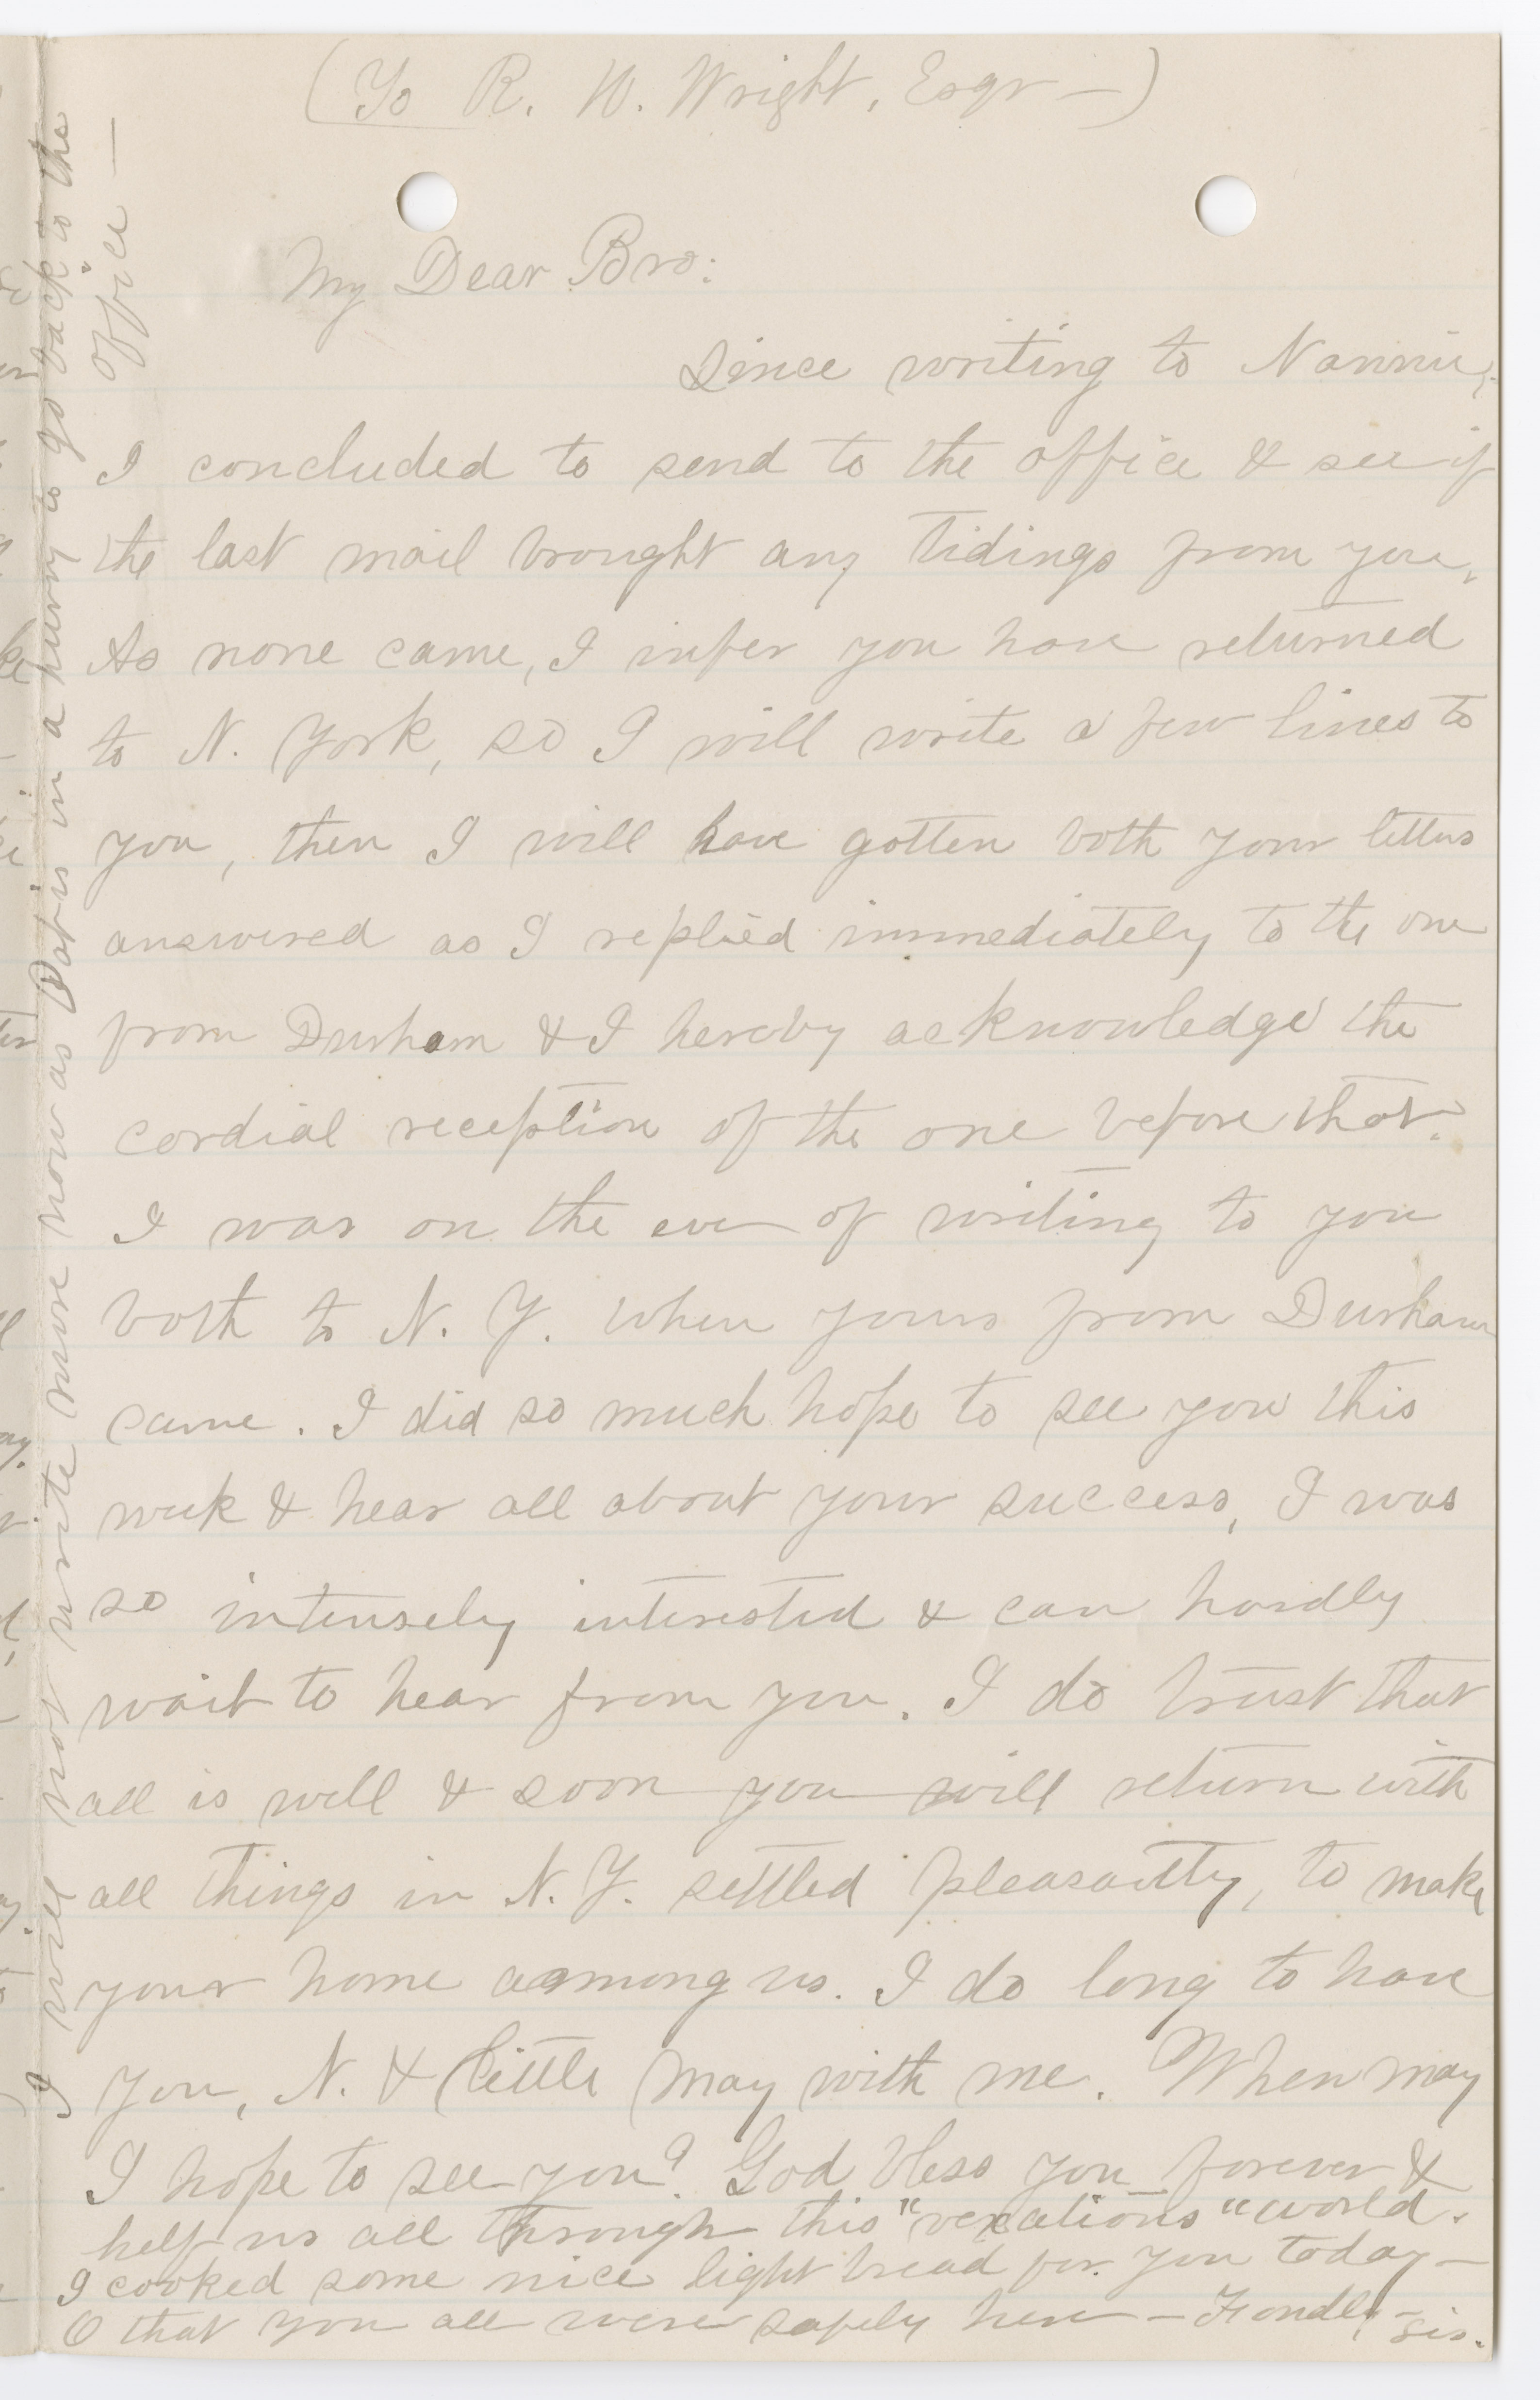 (To R. W. Wright, Esqr —)
My Dear Bro:
Since writing to Nannie,
I concluded to send to the office & see if
the last mail brought any tidings from you.
As none came, I infer you have returned
to N. York, so I will write a few lines to
you, then I will have gotten both your letters
answered as I replied immediately to the one
from Durham & I hereby acknowledge the
cordial reception of the one before that.
I was on the eve of writing to you
both to N. Y. when yours from Durham
came. I did so much hope to see you this
week & hear all about your success, I was
so intensely interested & can hardly
wait to hear from you. I do trust that
all is well & soon you will return with
all things in N. Y. settled pleasantly, to make
your home among us. I do long to have
you, N. & little May with me. When may
I hope to see you? God bless you forever &
help us all through this "vexatious" world.
I cooked some nice light bread for you today —
O that you all were safely here — Fondly — Sis.
I will not write more now as Pat is in a hurry to go back to the
office —